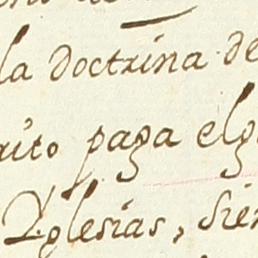 la doctrina de
rito paga el
Yglesias, sie